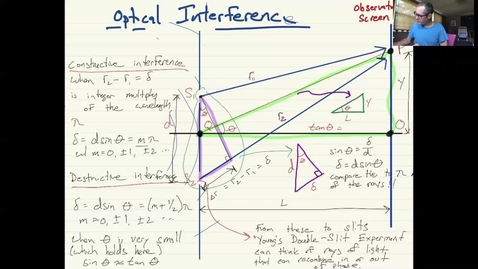 Optical Interference
Observation
Screen
Constructive interference
when r2 - r1 = δ
is integer multiply
of the wavelength
λ
δ = d sin θ = mλ
w/ m = 0, ±1, ±2 ...
Destructive interference
δ = d sin θ = (m + 1/2)λ
m = 0, ±1, ±2 ...
when θ is very small
(which holds here)
sin θ ≈ tan θ
S1
d
θ
θ
r1
r2
r2 - r1 = δ
L
P
Y
O
θ
Y
L
tan θ =
d
θ
δ
sin θ = δ/d
δ = d sin θ
compare the to λ
of the rays!!
From these to slits
"Young's Double-Slit Experiment
can think of rays of light
that can recombine in or out
of phase.